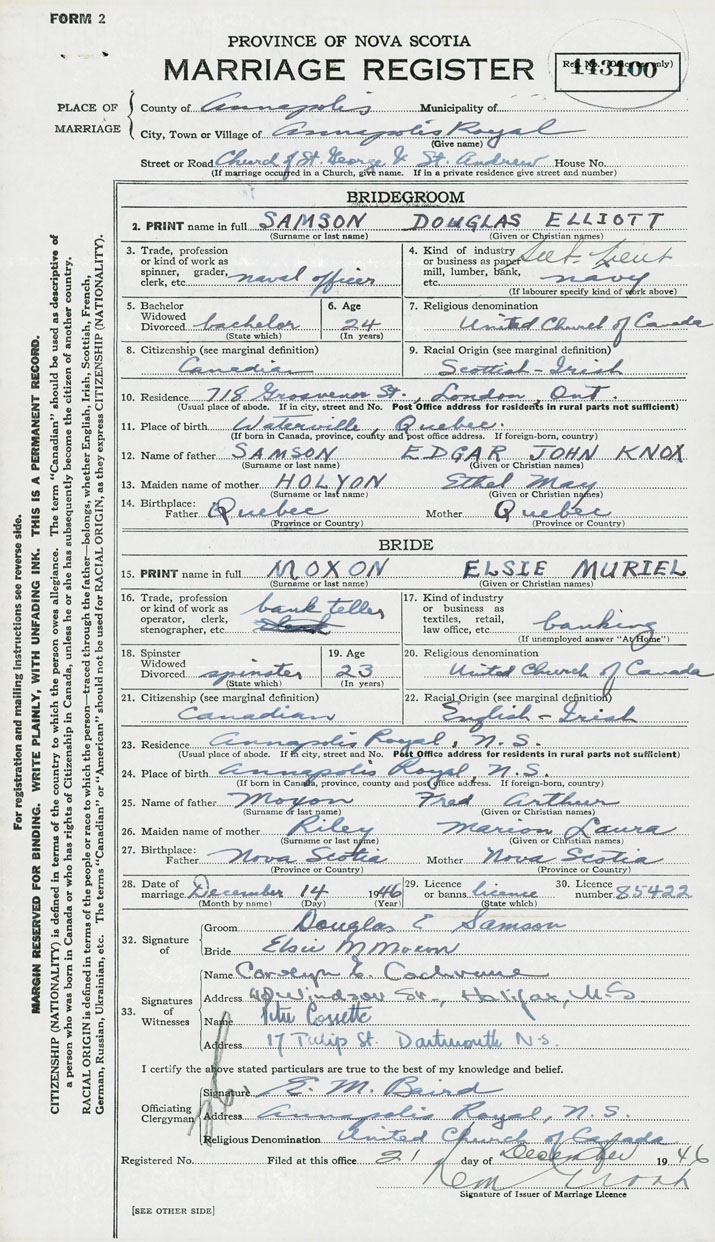 FORM 2
PROVINCE OF NOVA SCOTIA
MARRIAGE REGISTER
Reg. No. (Office use only)
143100
PLACE OF MARRIAGE
County of Annapolis Municipality of
City, Town or Village of Annapolis Royal
(Give name)
Street or Road Church of St. George & St. Andrew House No.
(If marriage occurred in a Church, give name. If in a private residence give street and number)
BRIDEGROOM
2. PRINT name in full SAMSON DOUGLAS ELLIOTT
(Surname or last name) (Given or Christian names)
3. Trade, profession or kind of work as spinner, grader, clerk, etc. naval officer
4. Kind of industry or business as paper mill, lumber, bank, etc. navy
(If labourer specify kind of work above)
5. Bachelor Widowed Divorced bachelor
(State which)
6. Age 24
(In years)
7. Religious denomination United Church of Canada
8. Citizenship (see marginal definition) Canadian
9. Racial Origin (see marginal definition) Scottish - Irish
10. Residence 718 Grosvenor St., London, Ont.
(Usual place of abode. If in city, street and No. Post Office address for residents in rural parts not sufficient)
11. Place of birth Waterville, Quebec.
(If born in Canada, province, county and post office address. If foreign-born, country)
12. Name of father SAMSON EDGAR JOHN KNOX
(Surname or last name) (Given or Christian names)
13. Maiden name of mother HOLYON Ethel May
(Surname or last name) (Given or Christian names)
14. Birthplace: Father Quebec Mother Quebec
(Province or Country) (Province or Country)
BRIDE
15. PRINT name in full MOXON ELSIE MURIEL
(Surname or last name) (Given or Christian names)
16. Trade, profession or kind of work as operator, clerk, stenographer, etc. bank teller
17. Kind of industry or business as textiles, retail, law office, etc. banking
(If unemployed answer "At Home")
18. Spinster Widowed Divorced spinster
(State which)
19. Age 23
(In years)
20. Religious denomination United Church of Canada
21. Citizenship (see marginal definition) Canadian
22. Racial Origin (see marginal definition) English - Irish
23. Residence Annapolis Royal, N.S.
(Usual place of abode. If in city, street and No. Post Office address for residents in rural parts not sufficient)
24. Place of birth Annapolis Royal, N.S.
(If born in Canada, province, county and post office address. If foreign-born, country)
25. Name of father Moxon Fred Arthur
(Surname or last name) (Given or Christian names)
26. Maiden name of mother Riley Marion Laura
(Surname or last name) (Given or Christian names)
27. Birthplace: Father Nova Scotia Mother Nova Scotia
(Province or Country) (Province or Country)
28. Date of marriage December 14 1946
(Month by name) (Day) (Year)
29. Licence or banns license
(State which)
30. Licence number 85422
32. Signature of
Groom Douglas E Samson
Bride Elsie M Moxon
33. Signatures of Witnesses
Name Carolyn E. Cochrane
Address Windsor St., Halifax, N.S
Name Cossette
Address 17 Tulip St. Dartmouth N.S.
I certify the above stated particulars are true to the best of my knowledge and belief.
Officiating Clergyman
Signature E. M. Baird
Address Annapolis Royal, N.S.
Religious Denomination United Church of Canada
Registered No. Filed at this office 21 day of December 1946
Signature of Issuer of Marriage Licence
[SEE OTHER SIDE]
For registration and mailing instructions see reverse side.
MARGIN RESERVED FOR BINDING. WRITE PLAINLY, WITH UNFADING INK. THIS IS A PERMANENT RECORD.
CITIZENSHIP (NATIONALITY) is defined in terms of the country to which the person owes allegiance. The term "Canadian" should be used as descriptive of
a person who was born in Canada or who has rights of Citizenship in Canada, unless he or she has subsequently become the citizen of another country.
RACIAL ORIGIN is defined in terms of the people or race to which the person—traced through the father—belongs, whether English, Irish, Scottish, French,
German, Russian, Ukrainian, etc. The terms "Canadian" or "American" should not be used for RACIAL ORIGIN, as they express CITIZENSHIP (NATIONALITY).